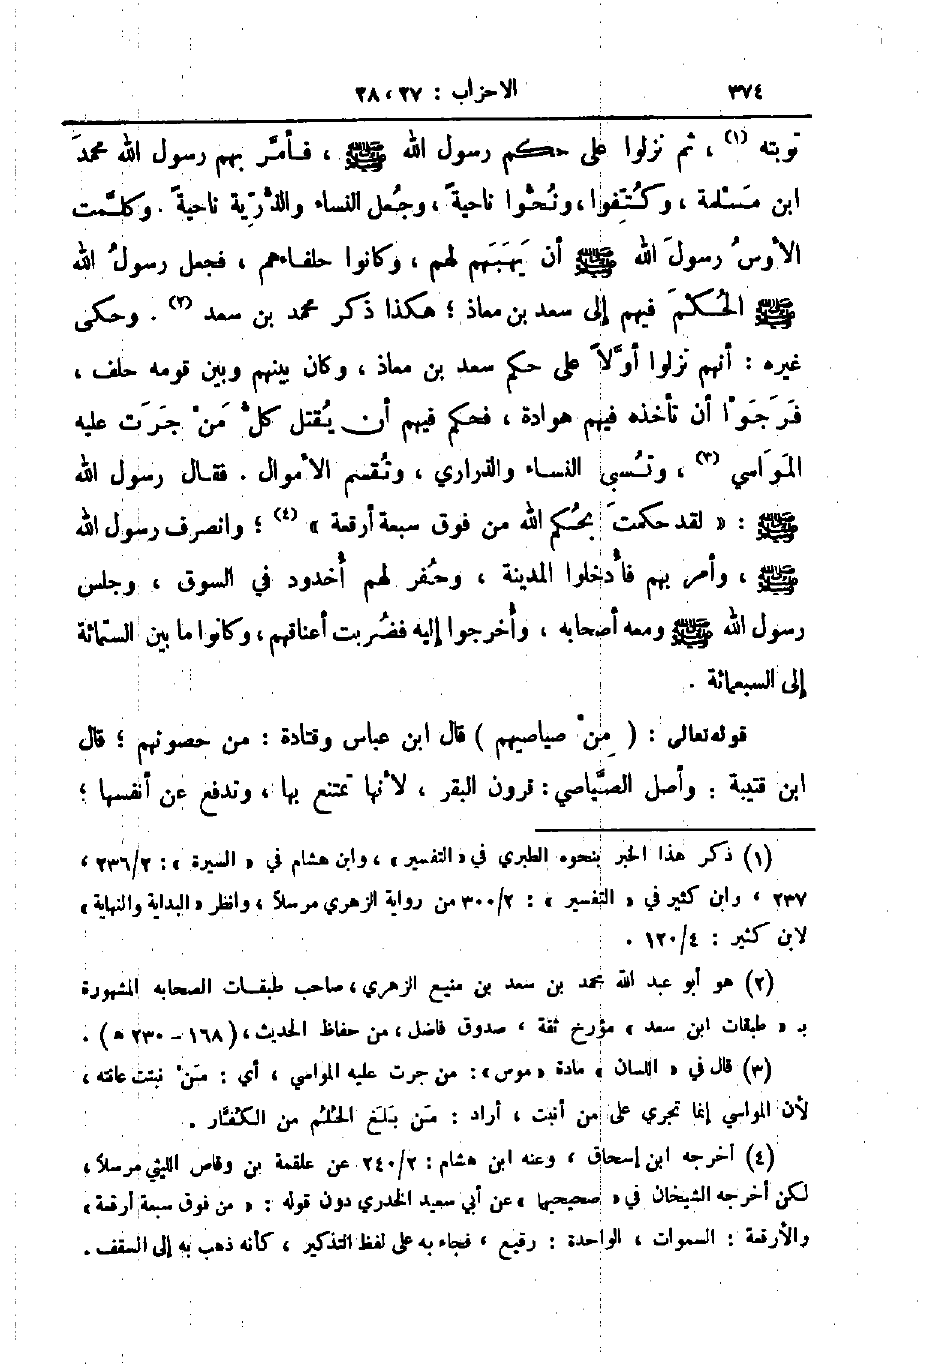 ٣٧٤
الاحزاب : ٢٧ ، ٢٨
توبته (١) ، ثم نزلوا على حكم رسول الله ﷺ ، فأمَّر بهم رسول الله محمدَ
ابن مَسْلمة ، وكُتِّفوا ، ونُحُّوا ناحيةً ، وجُعل النساء والذُّرِّية ناحيةً . وكلَّمت
الأوسُ رسولَ الله ﷺ أن يَهَبَهم لهم ، وكانوا حلفاءهم ، فجعل رسولُ الله
ﷺ الحُكْمَ فيهم إلى سعد بن معاذ ؛ هكذا ذكر محمد بن سعد (٢) . وحكى
غيره : أنهم نزلوا أوَّلاً على حكم سعد بن معاذ ، وكان بينهم وبين قومه حلف ،
فَرَجَوْا أن تأخذه فيهم هوادة ، فحكم فيهم أن يُقتل كلُّ مَنْ جَرَت عليه
المَوَاسي (٣) ، وتُسبى النساء والذراري ، وتُقسم الأموال . فقال رسول الله
ﷺ : « لقد حكمتَ بحُكم الله من فوق سبعة أرقعة » (٤) ؛ وانصرف رسول الله
ﷺ ، وأمر بهم فأُدخلوا المدينة ، وحُفر لهم أُخدود في السوق ، وجلس
رسول الله ﷺ ومعه أصحابه ، وأُخرجوا إليه فضُربت أعناقهم ، وكانوا ما بين الستمائة
إلى السبعمائة .
قوله تعالى : ( مِنْ صياصيهم ) قال ابن عباس وقتادة : من حصونهم ؛ قال
ابن قتيبة : وأصل الصَّياصي : قرون البقر ، لأنها تمتنع بها ، وتدفع عن أنفسها ؛
(١) ذكر هذا الخبر بنحوه الطبري في « التفسير » ، وابن هشام في « السيرة » : ٢٣٦/٢ ،
٢٣٧ ، وابن كثير في « التفسير » : ٣٠٠/٢ من رواية الزهري مرسلاً ، وانظر « البداية والنهاية »
لابن كثير : ١٢٠/٤ .
(٢) هو أبو عبد الله محمد بن سعد بن منيع الزهري ، صاحب طبقات الصحابه المشهورة
بـ « طبقات ابن سعد » مؤرخ ثقة ، صدوق فاضل ، من حفاظ الحديث ، ( ١٦٨ – ٢٣٠ ه ) .
(٣) قال في « اللسان » مادة « موس » : من جرت عليه المواسي ، أي : مَنْ نبتت عانته ،
لأن المواسي إنما تجري على من أنبت ، أراد : مَن بَلَغ الحُلُم من الكُفَّار .
(٤) أخرجه ابن إسحاق ، وعنه ابن هشام : ٢٤٠/٢ عن علقمة بن وقاص الليثي مرسلاً ،
لكن أخرجه الشيخان في « صحيحيها » عن أبي سعيد الخدري دون قوله : « من فوق سبعة أرقعة »
والأرقعة : السموات ، الواحدة : رقيع ، فجاء به على لفظ التذكير ، كأنه ذهب به إلى السقف .